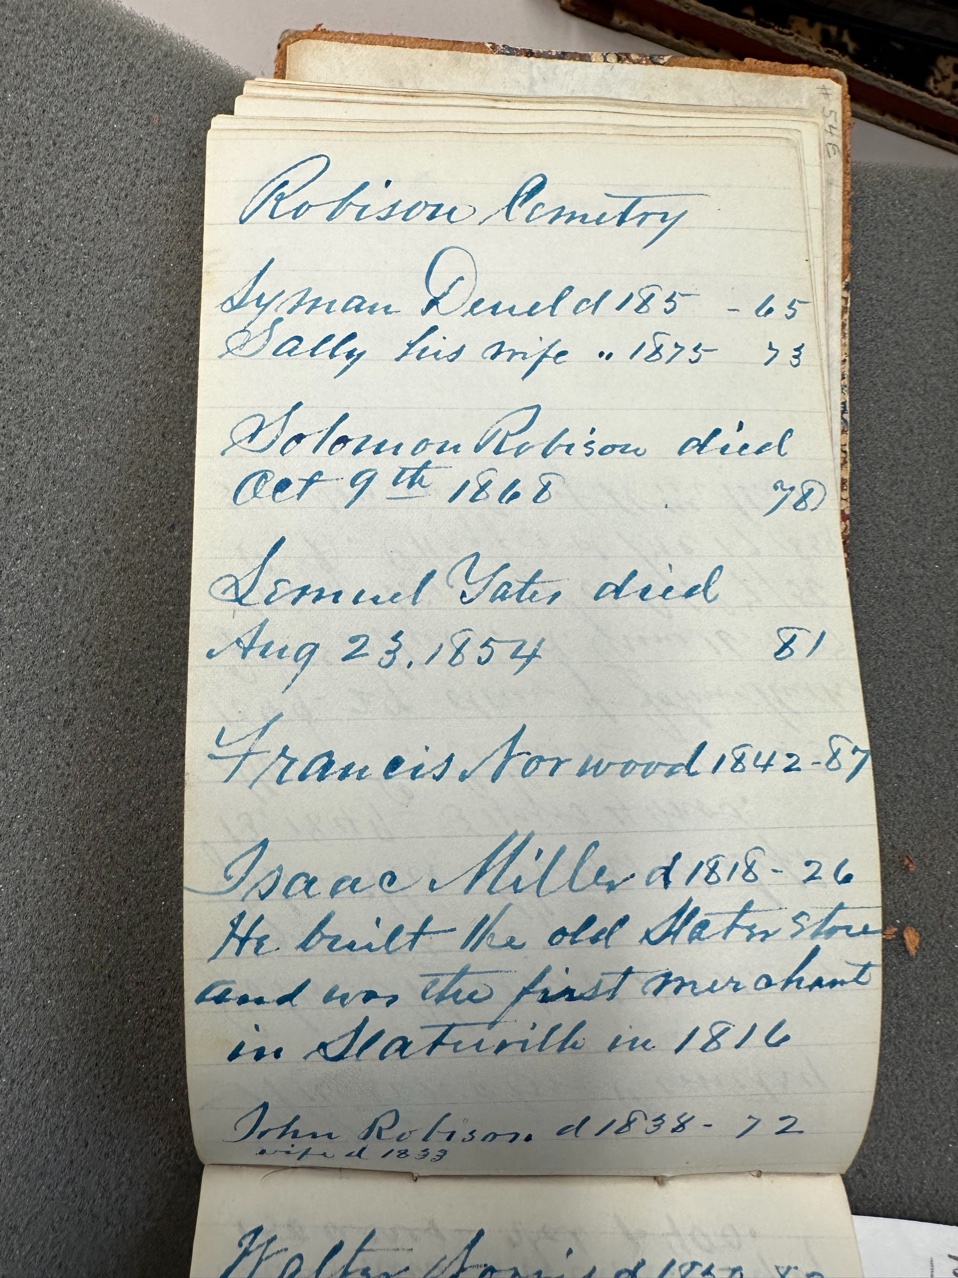 Robison Cemetry
Lyman Deuel d 185 - 65
Sally his wife " 1875 73
Solomon Robison died
Oct 9th 1868 78
Lemuel Yates died
Aug 23, 1854 81
Francis Norwood 1842-87
Isaac Miller d 1818 - 26
He built the old Slater Store
and was the first merchant
in Slaterville in 1816
John Robison d 1838 - 72
wife d 1833
Walter